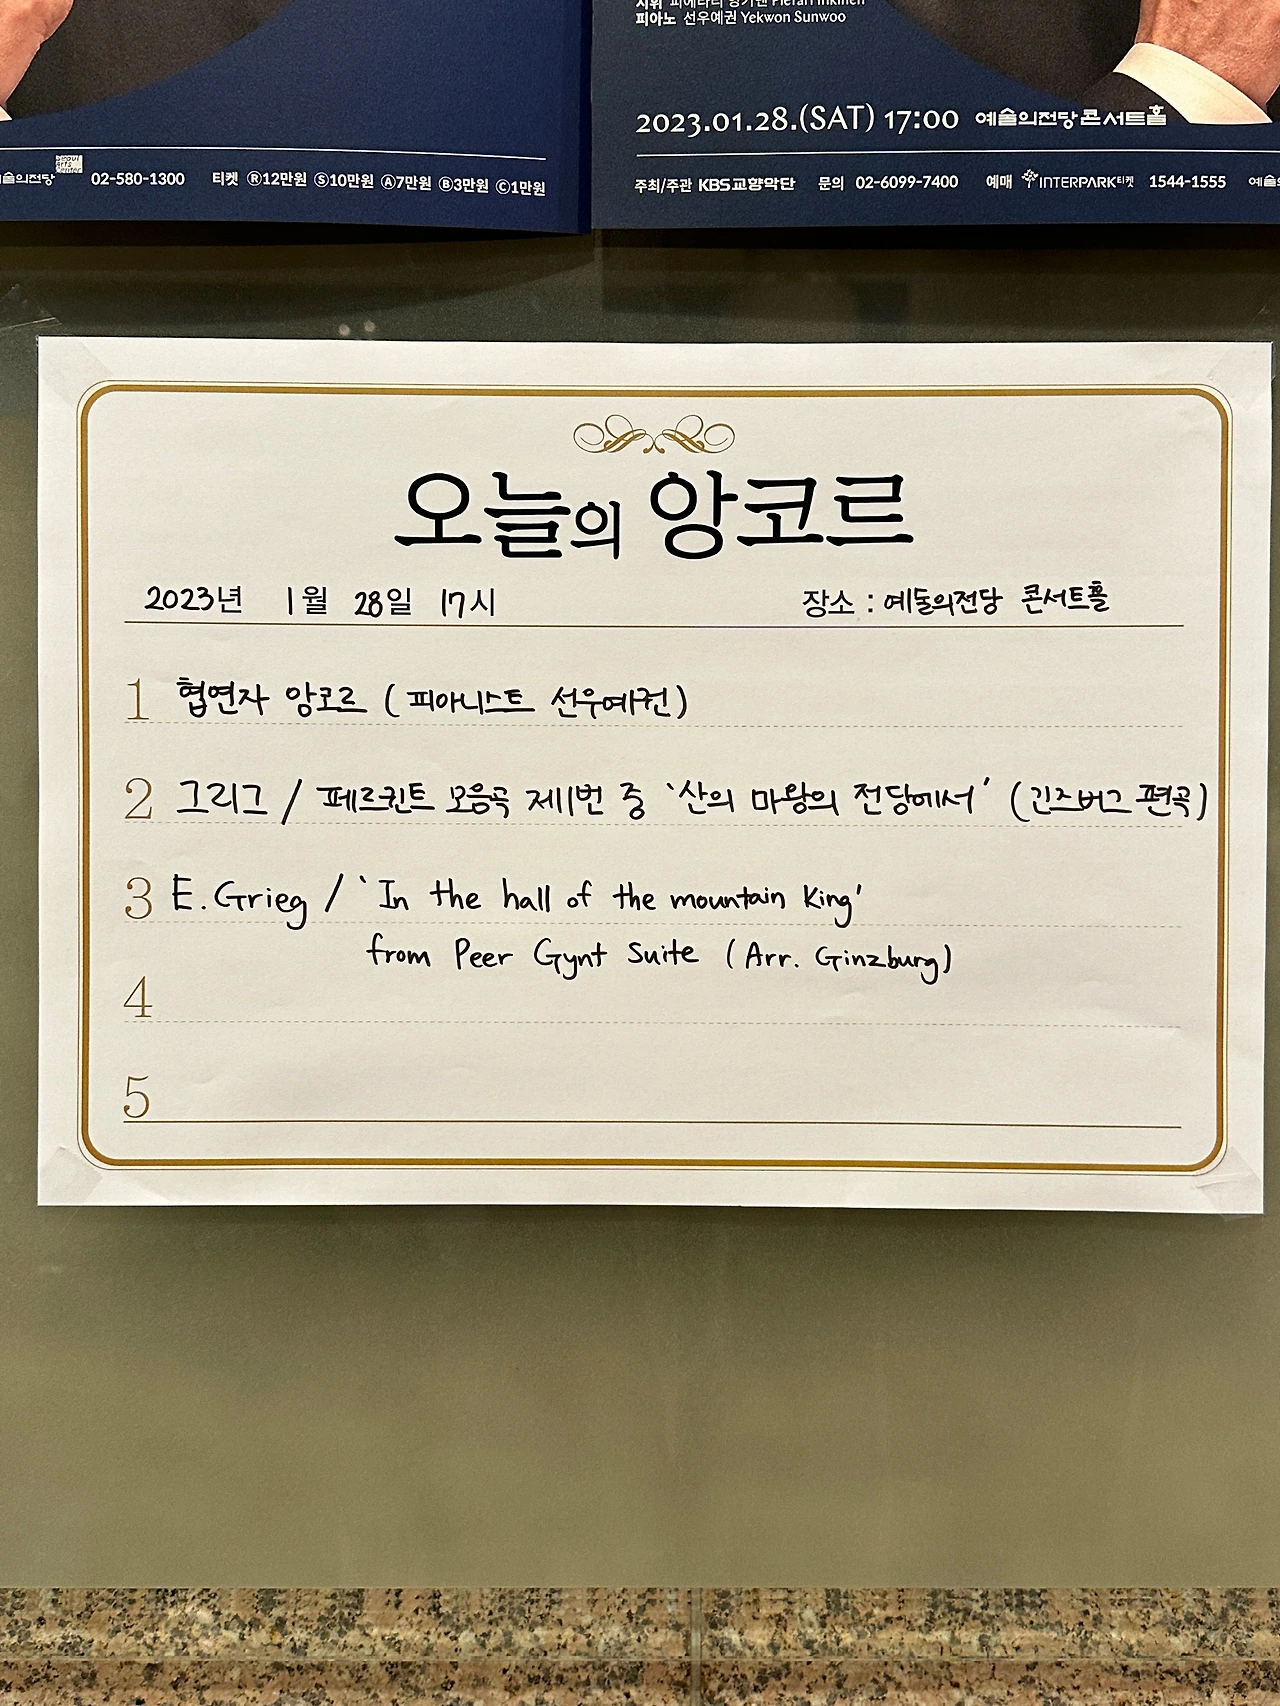 피아노 선우예권 Yekwon Sunwoo
2023.01.28.(SAT) 17:00 예술의전당 콘서트홀
술의전당 Seoul Arts Center 02-580-1300 티켓 Ⓡ12만원 Ⓢ10만원 Ⓐ7만원 Ⓑ3만원 Ⓒ1만원
주최/주관 KBS교향악단 문의 02-6099-7400 예매 INTERPARK티켓 1544-1555
오늘의 앙코르
2023년 1월 28일 17시 장소 : 예술의전당 콘서트홀
1 협연자 앙코르 (피아니스트 선우예권)
2 그리그 / 페르귄트 모음곡 제1번 중 '산의 마왕의 전당에서' (긴즈버그 편곡)
3 E. Grieg / 'In the hall of the mountain King'
from Peer Gynt Suite (Arr. Ginzburg)
4
5